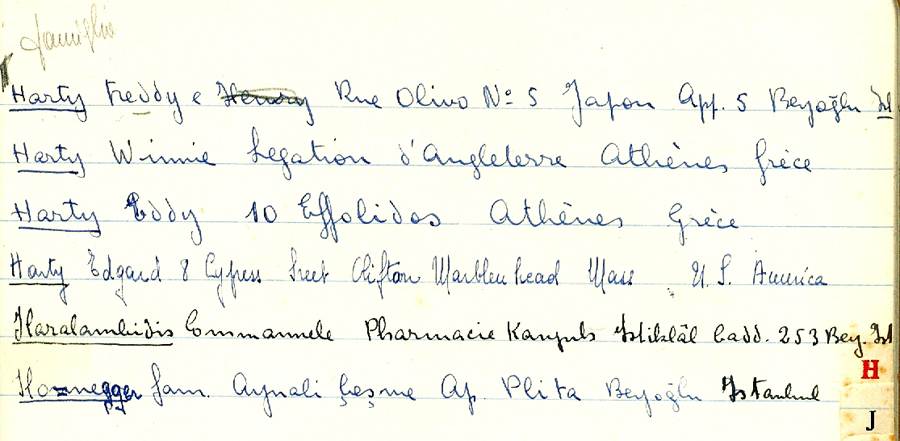 famiglia
Harty Freddy e Henry Rue Olivo Nº 5 Japon App. 5 Beyoğlu Ist
Harty Winnie Legation d'Angleterre Athènes Grèce
Harty Eddy 10 Effolidos Athènes Grèce
Harty Edgard 8 Cypress Street Clifton Marblehead Mass U.S. America
Haralambidis Emmanuele Pharmacie Istiklâl Cadd. 253 Bey. Ist
H
fam. Aynali Çeşme Ap. Plita Beyoğlu Istanbul
J